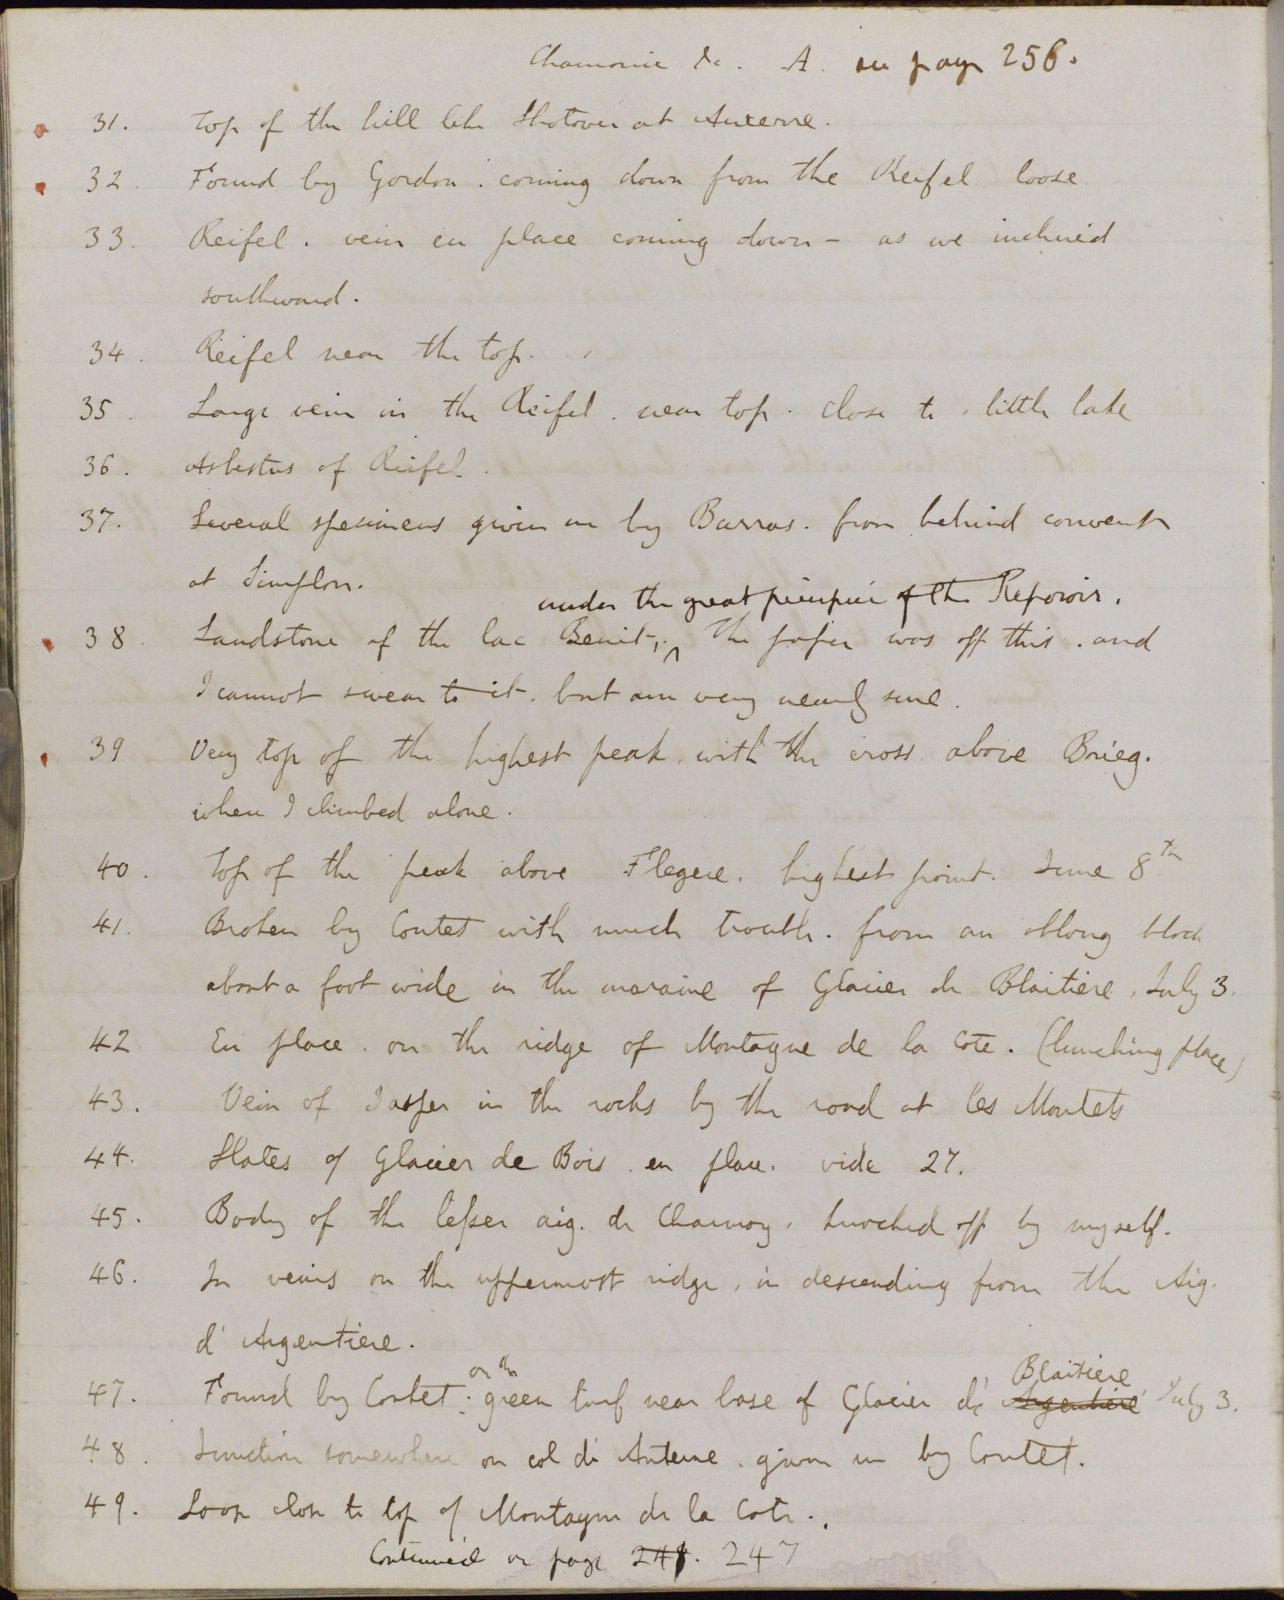 Chamonix &c. A. see page 256.
31. Top of the hill like Shotover at Auxerre.
32. Found by Gordon. coming down from the Reifel loose
33. Reifel. vein in place coming down – as we inclined
southward.
34. Reifel near the top.
35. Large vein in the Reifel. near top. close to little lake
36. Asbestus of Reifel.
37. Several specimens given me by Barras. from behind convent
at Simplon.
under the great precipice of the Reposoir.
38. Sandstone of the lac Benit, ^ The paper was off this. and
I cannot swear to it. but am very nearly sure.
39 Very top of the highest peak. with the cross above Brieg.
when I climbed alone.
40. Top of the peak above Flegere. highest point. June 8th
41. Broken by Coutet with much trouble. from an oblong block
about a foot wide in the moraine of Glacier de Blaitiere, July 3.
42 En place. on the ridge of Montagne de la Cote. (lunching place)
43. Vein of Jasper in the rocks by the road at les Montets
44. Slates of Glacier de Bois. en place. vide 27.
45. Body of the lesser aig. de Charmoz. knocked off by myself.
46. In veins on the uppermost ridge, in descending from the Aig.
d'Argentiere.
on the Blaitiere
47. Found by Coutet. green turf near base of Glacier de Argentiere July 3.
48. Junction somewhere on col di Anterne. given me by Coutet.
49. Loose close to top of Montagne de la Cote.
Continued on page 248. 247